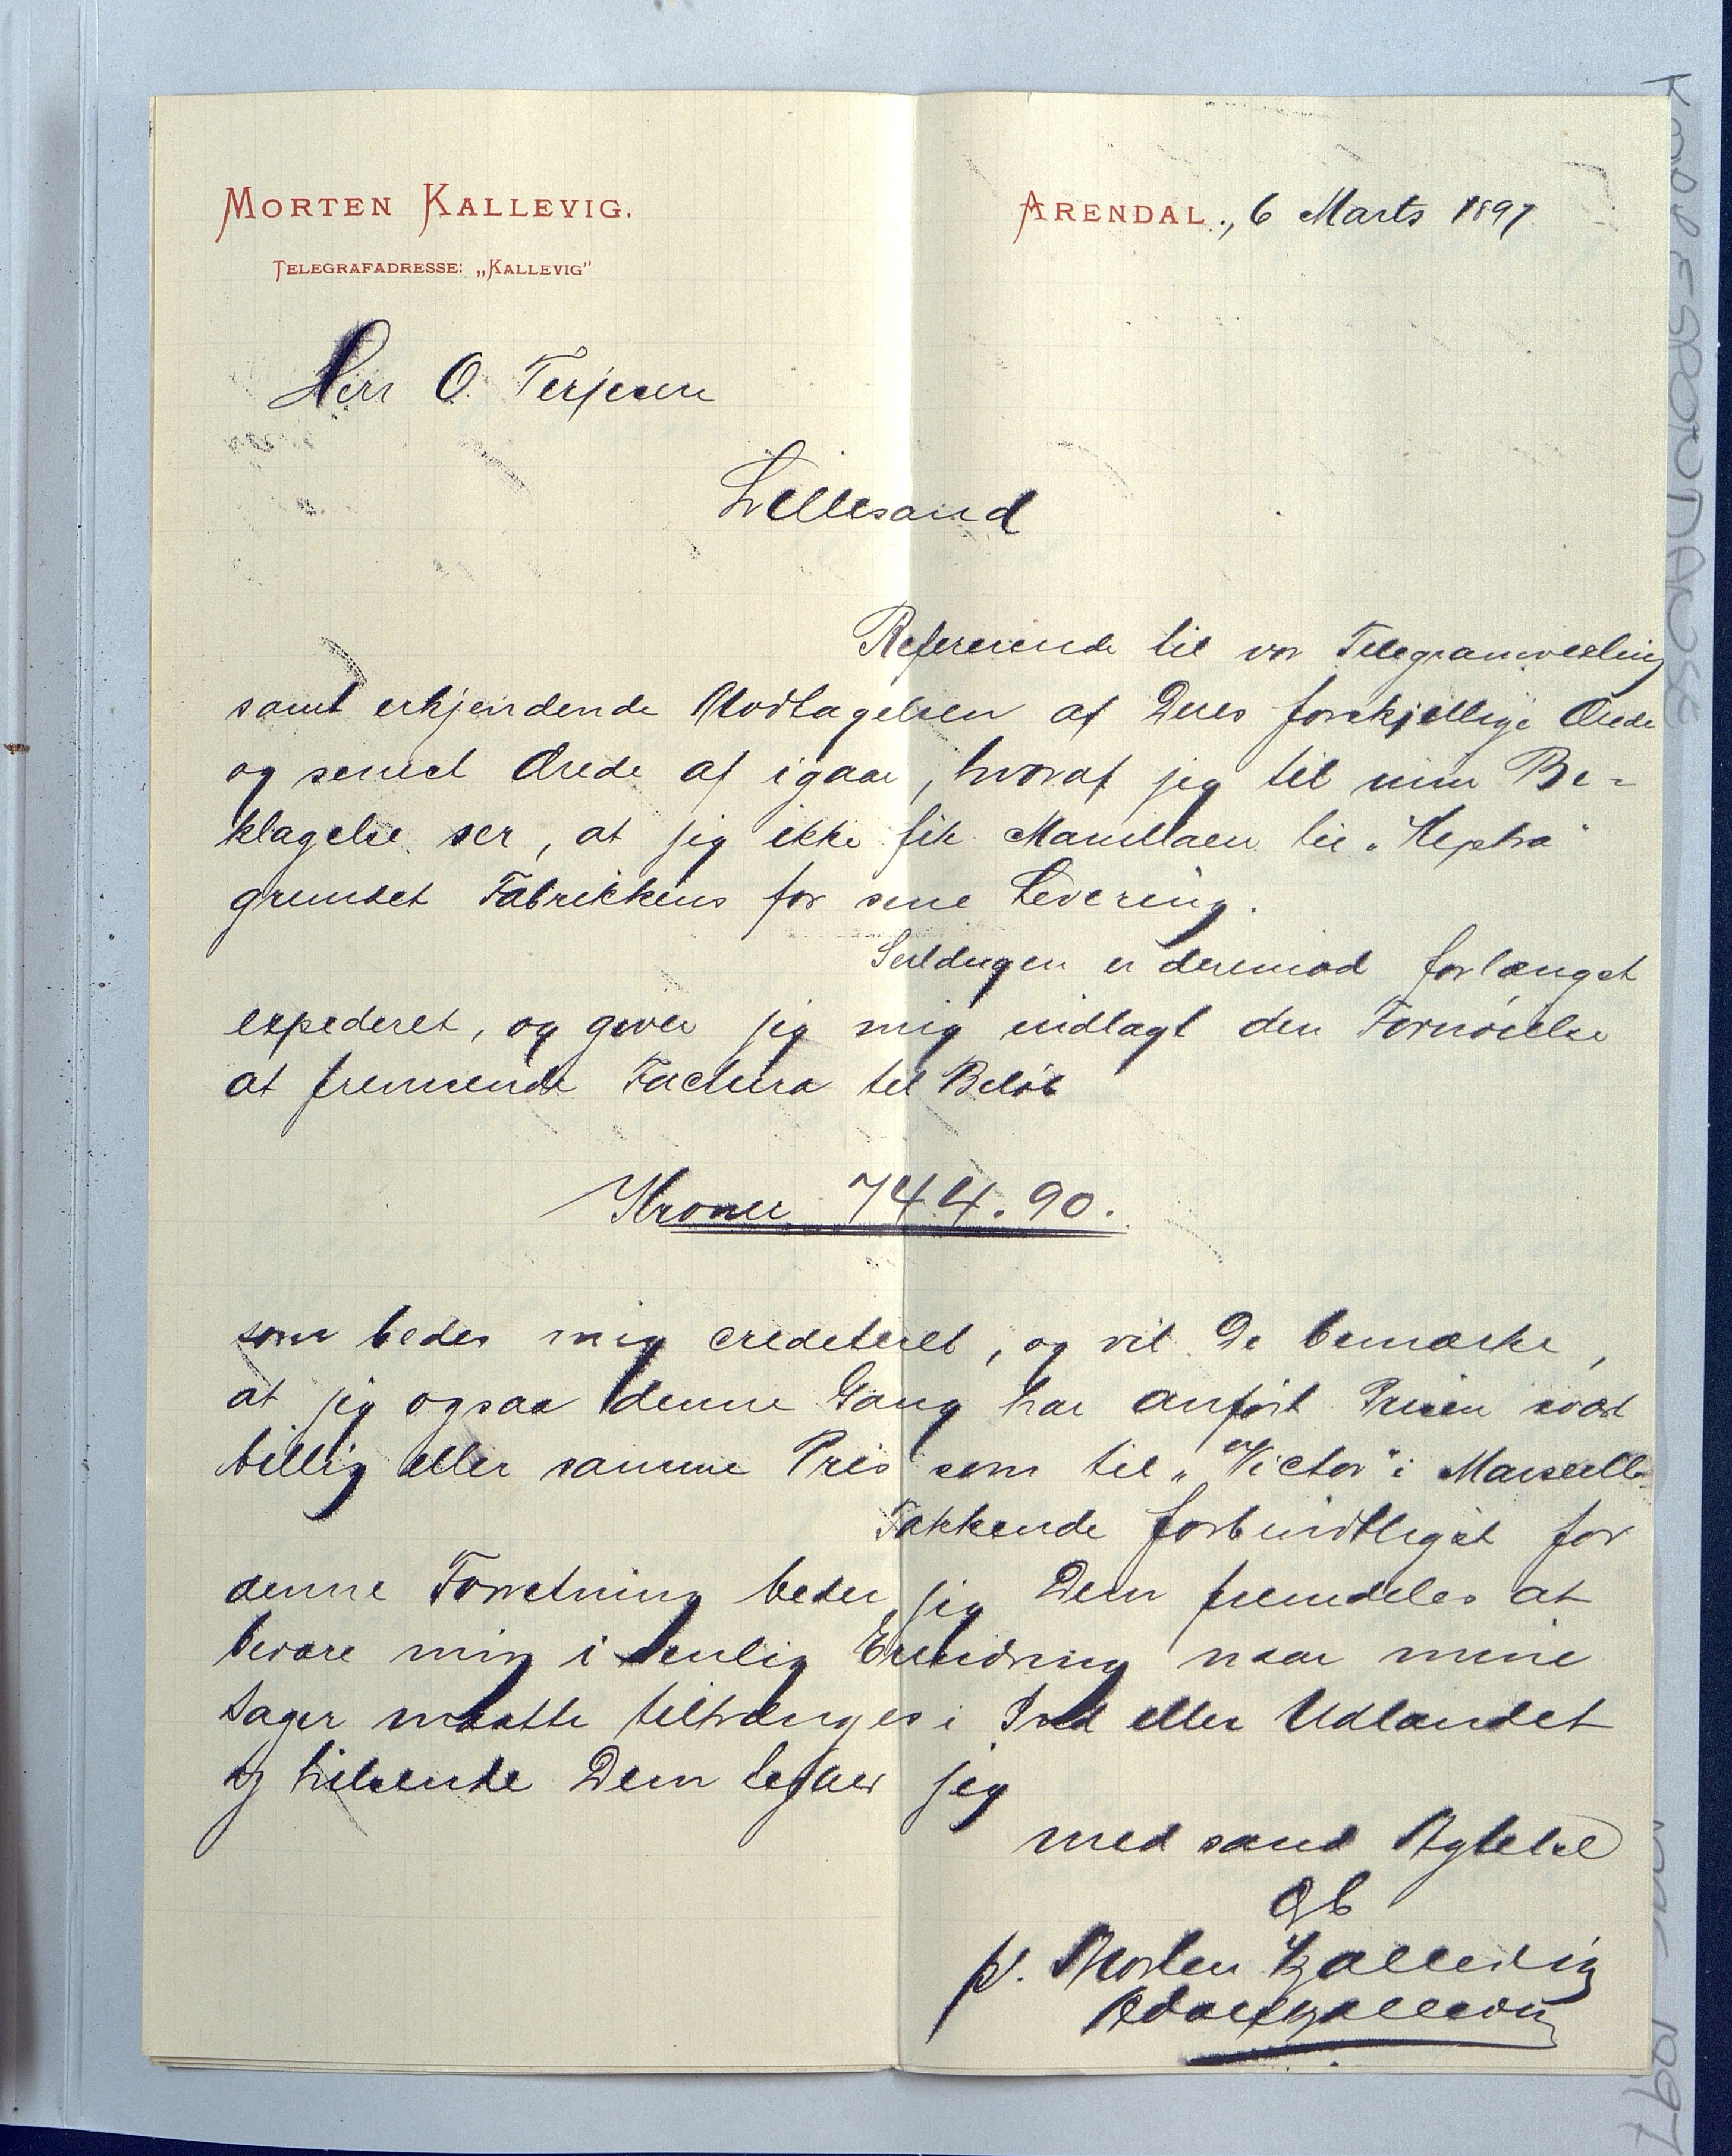 MORTEN KALLEVIG.
TELEGRAFADRESSE: „KALLEVIG"
ARENDAL., 6 Marts 1897
Herr O. Terjesen
Lillesand
Refererende til vor Telegramvexling
samt erkjendende Modtagelsen af Deres forskjellige Ærede
og senest Ærede af igaar, hvoraf jeg til min Be-
klagelse ser, at jeg ikke fik Manillaen til „Heptra"
grundet Fabrikkens for sene Levering.
Seildugen er derimod forlængst
expederet, og giver jeg mig indlagt den Fornöielse
at fremsende Factura til Belöb
Kroner 744.90.
som bedes mig crediteret, og vil De bemærke,
at jeg ogsaa denne Gang har anfört Prisen svært
billig eller samme Pris som til „Victor" i Marseille
Takkende forbindtligst for
denne Forretning beder jeg Dem fremdeles at
bevare mig i venlig Erindring naar mine
Sager maatte tiltrænges i Ind eller Udlandet
og hilsende Dem tegner jeg
med sand Agtelse
p. Morten Kallevig
Adolf Kallevig
KORRESPONDANSE
1897